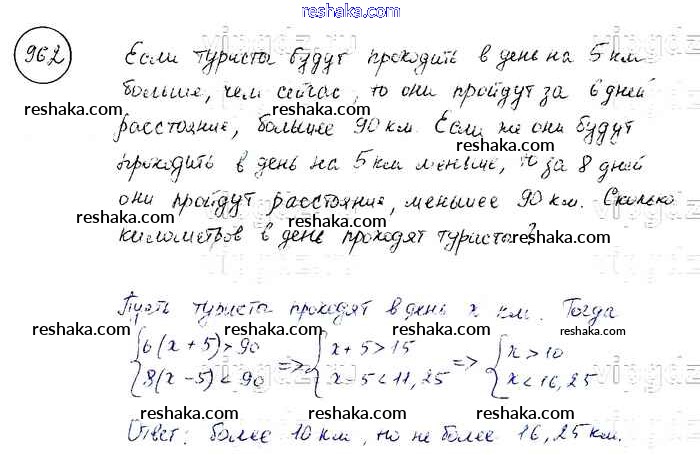 reshaka.com
962
Если туристы будут проходить в день на 5 км
больше, чем сейчас, то они пройдут за 6 дней
reshaka.com reshaka.com reshaka.com
расстояние, большее 90 км. Если же они будут
проходить в день на 5 км меньше, то за 8 дней
reshaka.com reshaka.com reshaka.com
они пройдут расстояние, меньшее 90 км. Сколько
reshaka.com reshaka.com reshaka.com
километров в день проходят туристы?
Пусть туристы проходят в день x км. Тогда
reshaka.com reshaka.com reshaka.com
{6(x+5)>90 => {x+5>15 => {x>10
8(x-5)<90 x-5<11,25 x<16,25
reshaka.com reshaka.com reshaka.com
Ответ: более 10 км, но не более 16,25 км.
reshaka.com reshaka.com reshaka.com